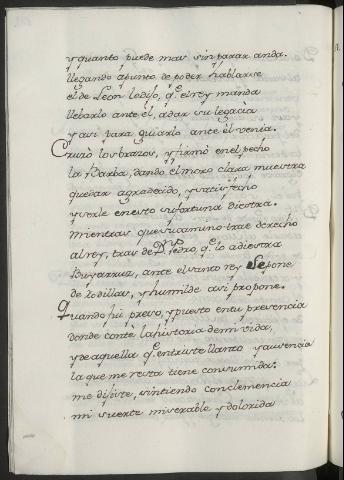 y quanto puede mas sin parar anda.
llegando a punto de poder hablarse
el de Leon le dijo, q.e el rey manda
llebarlo ante el, a dar su legacia
y asi para guiarlo ante el venia.
Cruzò los brazos, y firmò en el pecho
la barba, dando el moro clara muestra
quedar agradecido, y satisfecho
y verle en esto su fortuna diestra.
Mientras que su camino trae derecho
al rey, tras de D.n Pedro, q.e lo adiestra
Buyarraz, ante el santo rey Se pone
de rodillas, y humilde asi propone.
Quando fui preso, y puesto en tu presencia
donde contè la historia de mi vida,
y de aquella q.e en triste llanto y ausencia
la que me resta tiene consumida:
me dijiste, sintiendo con clemencia
mi suerte miserable y dolorida